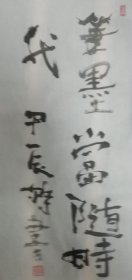 筆墨當隨時
代
甲辰